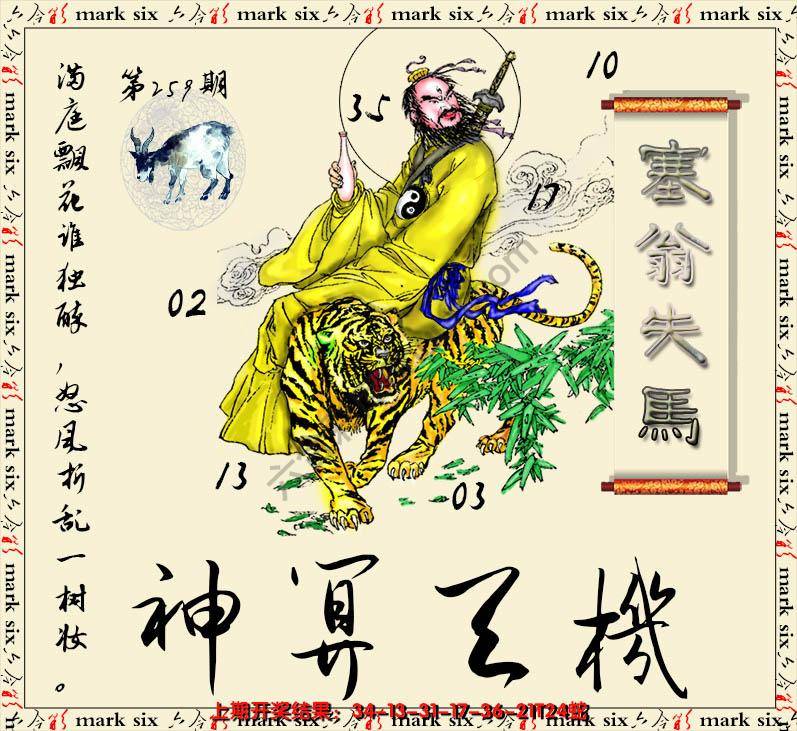 六合彩 mark six 六合彩 mark six 六合彩 mark six 六合彩 mark six 六合彩
第259期
满庭飘花谁独醉，怒风折乱一树妆。
35
10
17
02
13
03
塞翁失馬
神算天機
上期开奖结果：34-13-31-17-36-21T24蛇
mark six 六合彩 mark six 六合彩 mark six 六合彩 mark six